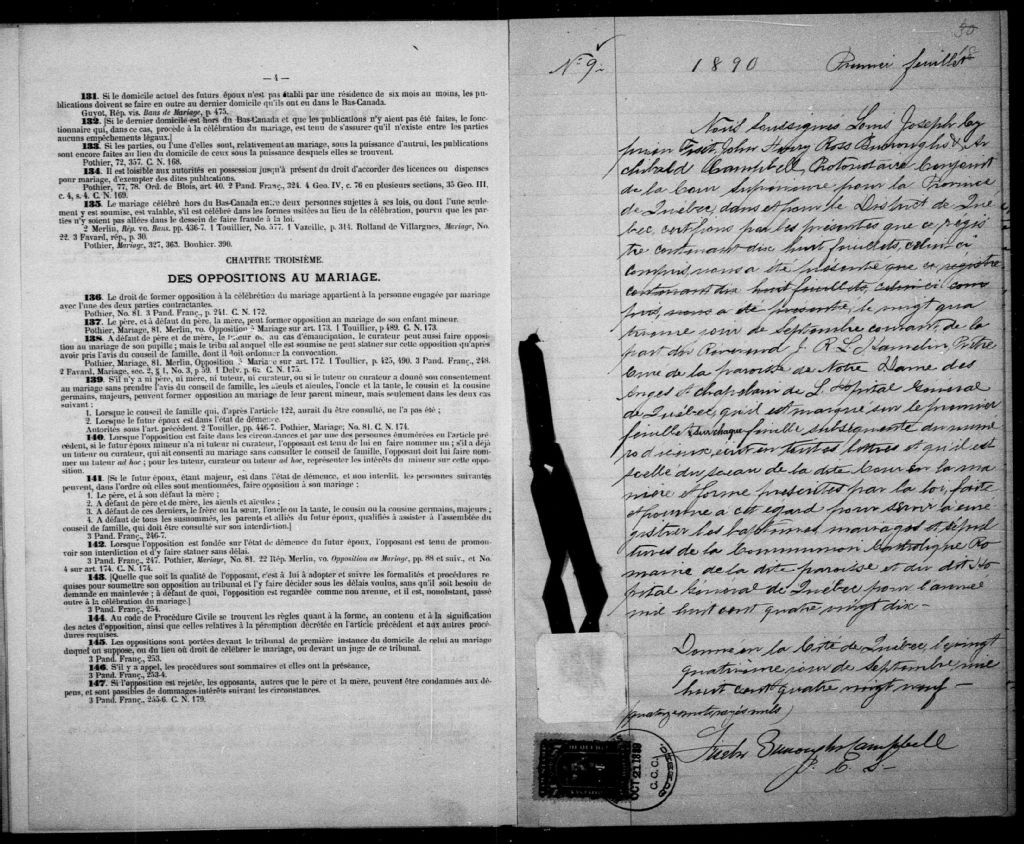 — 4 —
131. Si le domicile actuel des futurs époux n'est pas établi par une résidence de six mois au moins, les pu-
blications doivent se faire en outre au dernier domicile qu'ils ont eu dans le Bas-Canada.
Guyot, Rép. vis. Bans de Mariage, p. 475.
132. [Si le dernier domicile est hors du Bas-Canada et que les publications n'y aient pas été faites, le fonc-
tionnaire qui, dans ce cas, procède à la célébration du mariage, est tenu de s'assurer qu'il n'existe entre les parties
aucuns empêchements légaux.]
133. Si les parties, ou l'une d'elles sont, relativement au mariage, sous la puissance d'autrui, les publications
sont encore faites au lieu du domicile de ceux sous la puissance desquels elles se trouvent.
Pothier, 72, 357. C. N. 168.
134. Il est loisible aux autorités en possession jusqu'à présent du droit d'accorder les licences ou dispenses
pour mariage, d'exempter des dites publications.
Pothier, 77, 78. Ord. de Blois, art. 40. 2 Pand. Franç., 324. 4 Geo. IV, c. 76 en plusieurs sections, 35 Geo. III,
c. 4, s. 4. C. N. 169.
135. Le mariage célébré hors du Bas-Canada entre deux personnes sujettes à ses lois, ou dont l'une seule-
ment y est soumise, est valable, s'il est célébré dans les formes usitées au lieu de la célébration, pourvu que les par-
ties n'y soient pas allées dans le dessein de faire fraude à la loi.
2 Merlin, Rép. vo. Bans, pp. 436-7. 1 Touillier, No. 577. 1 Vazeille, p. 314. Rolland de Villargues, Mariage, No.
22. 3 Favard, rép., p. 30.
Pothier, Mariage, 327, 363. Bouhier. 390.
CHAPITRE TROISIÈME.
DES OPPOSITIONS AU MARIAGE.
136. Le droit de former opposition à la célébration du mariage appartient à la personne engagée par mariage
avec l'une des deux parties contractantes.
Pothier, No. 81. 3 Pand. Franç., p. 241. C. N. 172.
137. Le père, et à défaut du père, la mère, peut former opposition au mariage de son enfant mineur.
Pothier, Mariage, 81. Merlin, vo. Opposition à Mariage sur art. 173. 1 Touillier, p. 489. C. N. 173.
138. A défaut de père et de mère, le tuteur ou, au cas d'émancipation, le curateur peut aussi faire opposition
au mariage de son pupille ; mais le tribunal auquel elle est soumise ne peut statuer sur cette opposition qu'après
avoir pris l'avis du conseil de famille, dont il doit ordonner la convocation.
Pothier, Mariage, 81. Merlin, vo. Opposition à Mariage sur art. 172. 1 Toullier, p. 425, 490. 3 Pand. Franç., 248.
2 Favard, Mariage, sec. 2, § 1, No. 3, p. 59. 1 Delv. p. 62. C. N. 175.
139. S'il n'y a ni père, ni mère, ni tuteur, ni curateur, ou si le tuteur ou curateur a donné son consentement
au mariage sans prendre l'avis du conseil de famille, les aïeuls et aïeules, l'oncle et la tante, le cousin et la cousine
germains, majeurs, peuvent former opposition au mariage de leur parent mineur, mais seulement dans les deux cas
suivant :
1. Lorsque le conseil de famille qui, d'après l'article 122, aurait du être consulté, ne l'a pas été ;
2. Lorsque le futur époux est dans l'état de démence.
Autorités sous l'art. précédent. 2 Touillier, pp. 446-7. Pothier, Mariage; No. 81. C. N. 174.
140. Lorsque l'opposition est faite dans les circonstances et par une des personnes énumérées en l'article pré-
cédent, si le futur époux mineur n'a ni tuteur ni curateur, l'opposant est tenu de lui en faire nommer un ; s'il a déjà
un tuteur ou curateur, qui ait consenti au mariage sans consulter le conseil de famille, l'opposant doit lui faire nom-
mer un tuteur ad hoc ; pour les tuteur, curateur ou tuteur ad hoc, représenter les intérêts du mineur sur cette oppo-
sition.
141. [Si le futur époux, étant majeur, est dans l'état de démence, et non interdit, les personnes suivantes
peuvent, dans l'ordre où elles sont mentionnées, faire opposition à son mariage ;
1. Le père, et à son défaut la mère ;
2. A défaut de père et de mère, les aïeuls et aïeules ;
3. A défaut de ces derniers, le frère ou la sœur, l'oncle ou la tante, le cousin ou la cousine germains, majeurs ;
4. A défaut de tous les susnommés, les parents et alliés du futur époux, qualifiés à assister à l'assemblée du
conseil de famille, qui doit être consulté sur son interdiction.]
3 Pand. Franç., 246-7.
142. Lorsque l'opposition est fondée sur l'état de démence du futur époux, l'opposant est tenu de promou-
voir son interdiction et d'y faire statuer sans délai.
3 Pand. Franç., 247. Pothier, Mariage, No. 81. 22 Rép. Merlin, vo. Opposition au Mariage, pp. 88 et suiv., et No.
4 sur art. 174. C. N. 174.
143. [Quelle que soit la qualité de l'opposant, c'est à lui à adopter et suivre les formalités et procédures re-
quises pour soumettre son opposition au tribunal et l'y faire décider sous les délais voulus, sans qu'il soit besoin de
demande en mainlevée ; à défaut de quoi, l'opposition est regardée comme non avenue, et il est, nonobstant, passé
outre à la célébration du mariage.]
3 Pand. Franç., 254.
144. Au code de Procédure Civile se trouvent les règles quant à la forme, au contenu et à la signification
des actes d'opposition, ainsi que celles relatives à la péremption décrétée en l'article précédent et aux autres procé-
dures requises.
145. Les oppositions sont portées devant le tribunal de première instance du domicile de celui au mariage
duquel on suppose, ou du lieu où doit de célébrer le mariage, ou devant un juge de ce tribunal.
3 Pand. Franç., 253.
146. S'il y a appel, les procédures sont sommaires et elles ont la préséance,
3 Pand. Franç., 253-4.
147. Si l'opposition est rejetée, les opposants, autres que le père et la mère, peuvent être condamnés aux dé-
pens, et sont passibles de dommages-intérêts suivant les circonstances.
3 Pand. Franç., 255-6. C. N. 179.
50
No 9
1890 Premier feuillet
Nous Soussignés Louis Joseph Cy
prien Fiset, John Henry Ross Burroughs & Ar
chibald Campbell, Protonotaire Conjoint
de la Cour Supérieure pour la Province
de Québec, dans et pour le District de Qué
bec, certifions par les présentes que ce régis
tre contenant dix huit feuillets, celui ci
compris, nous a été présenté que ce registre
contenant dix huit feuillets, celui ci com
pris, nous a été présenté, le vingt qua
trième jour de septembre courant, de la
part du Révérend J. R. L. Hamelin, Ptre
Curé de la paroisse de Notre Dame des
Anges et chapelain de L'Hôpital Général
de Québec, qu'il est marqué sur le premier
feuillet & sur chaque feuillet subséquent du numé
ro d'iceux, écrit en toutes lettres et qu'il est
scellé du sceau de la dite Cour en la ma
nière et forme prescrites par la loi, faite
et pourvue à cet égard pour servir à enre
gistrer les baptêmes mariages et sépul
tures de la Communion Catholique Ro
maine de la dite paroisse et du dit Hô
pital Général de Québec pour l'année
mil huit cent quatre vingt dix —
Donné en la Cité de Québec, le vingt
quatrième jour de septembre mil
huit cent quatre vingt neuf —
Fiset Burroughs Campbell
P. C. S.
OCT 21 1889
C.C.C.
QUEBEC